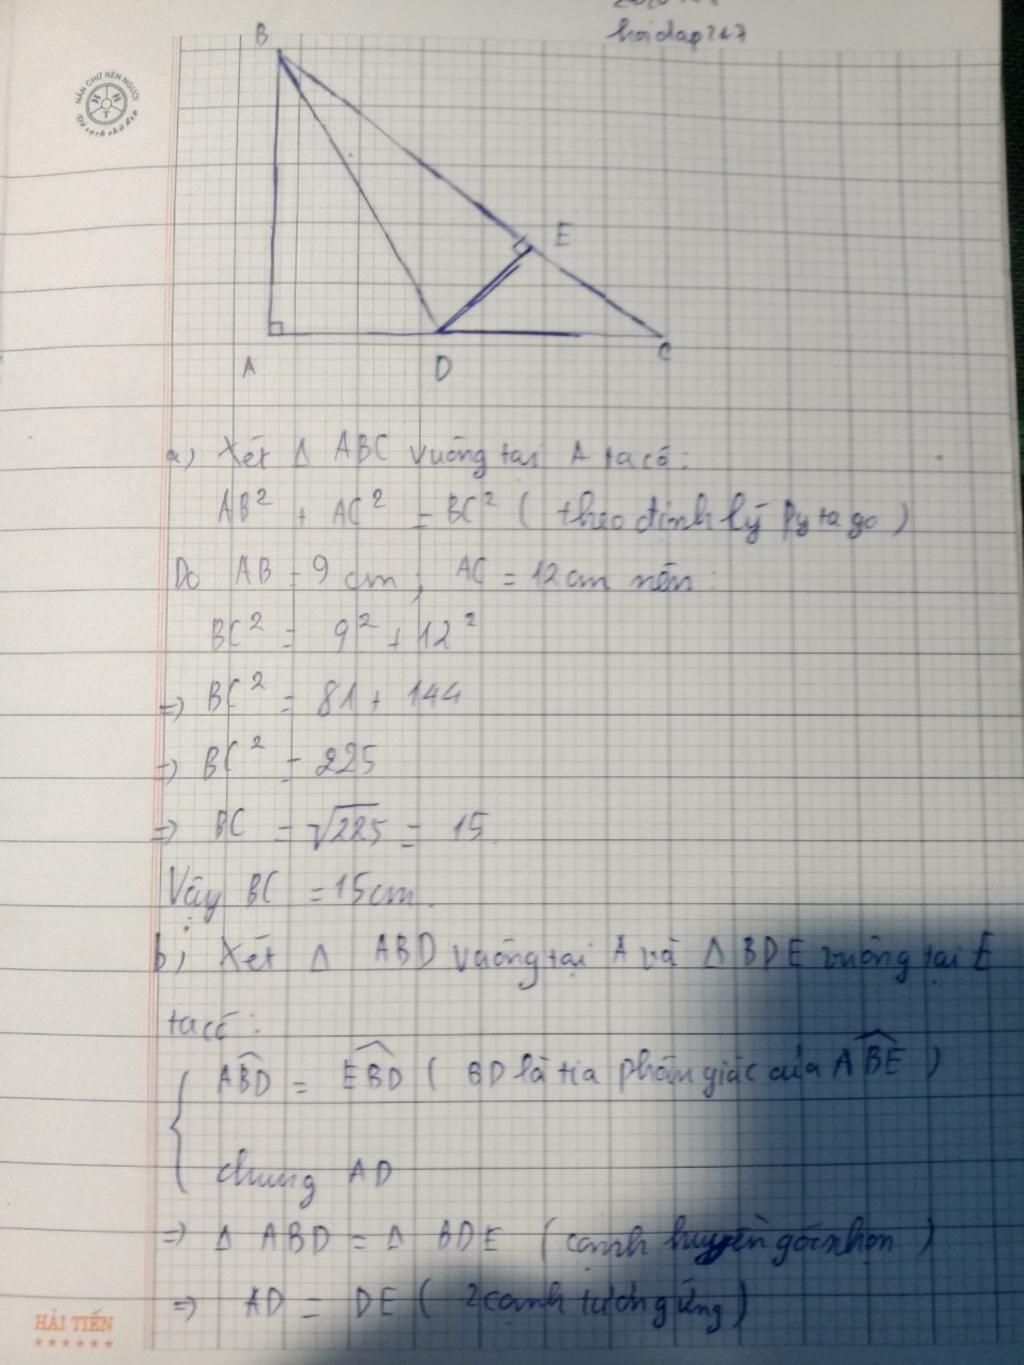 hoidap247
NẮN CHỮ RÈN NGƯỜI
H H T
B
E
A
D
C
a) Xét Δ ABC vuông tại A ta có:
AB² + AC² = BC² ( theo định lý Pytago )
Do AB = 9 cm ; AC = 12 cm nên:
BC² = 9² + 12²
=> BC² = 81 + 144
=> BC² = 225
=> BC = √225 = 15
Vậy BC = 15cm.
b) Xét Δ ABD vuông tại A và Δ BDE vuông tại E
ta có:
ABD̂ = EBD̂ ( BD là tia phân giác của ABÊ )
chung AD
=> Δ ABD = Δ BDE ( cạnh huyền góc nhọn )
=> AD = DE ( 2 cạnh tương ứng )
HẢI TIẾN